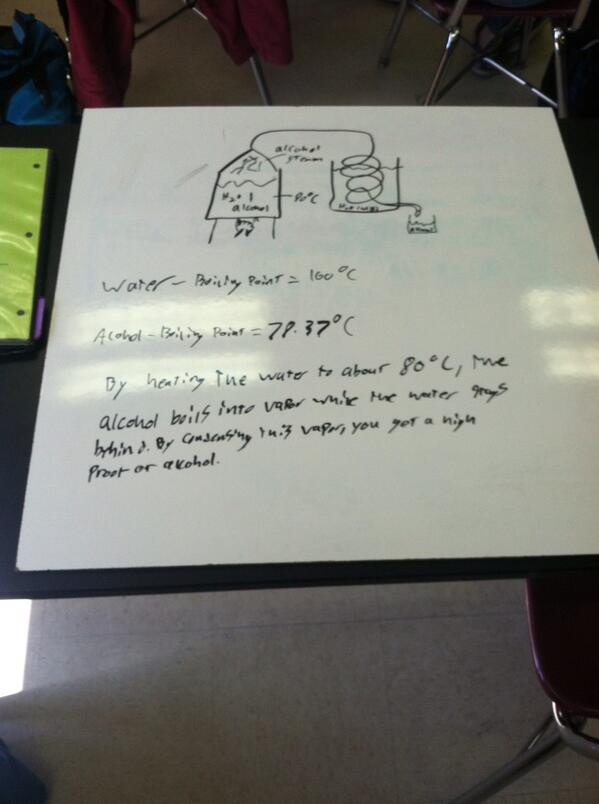 alcohol
steam
H2O +
alcohol
80°C
alcohol
Water - Boiling Point = 100°C
Alcohol - Boiling Point = 78.37°C
By heating the water to about 80°C, the
alcohol boils into vapor while the water stays
behind. By condensing this vapor, you get a high
Proof of alcohol.